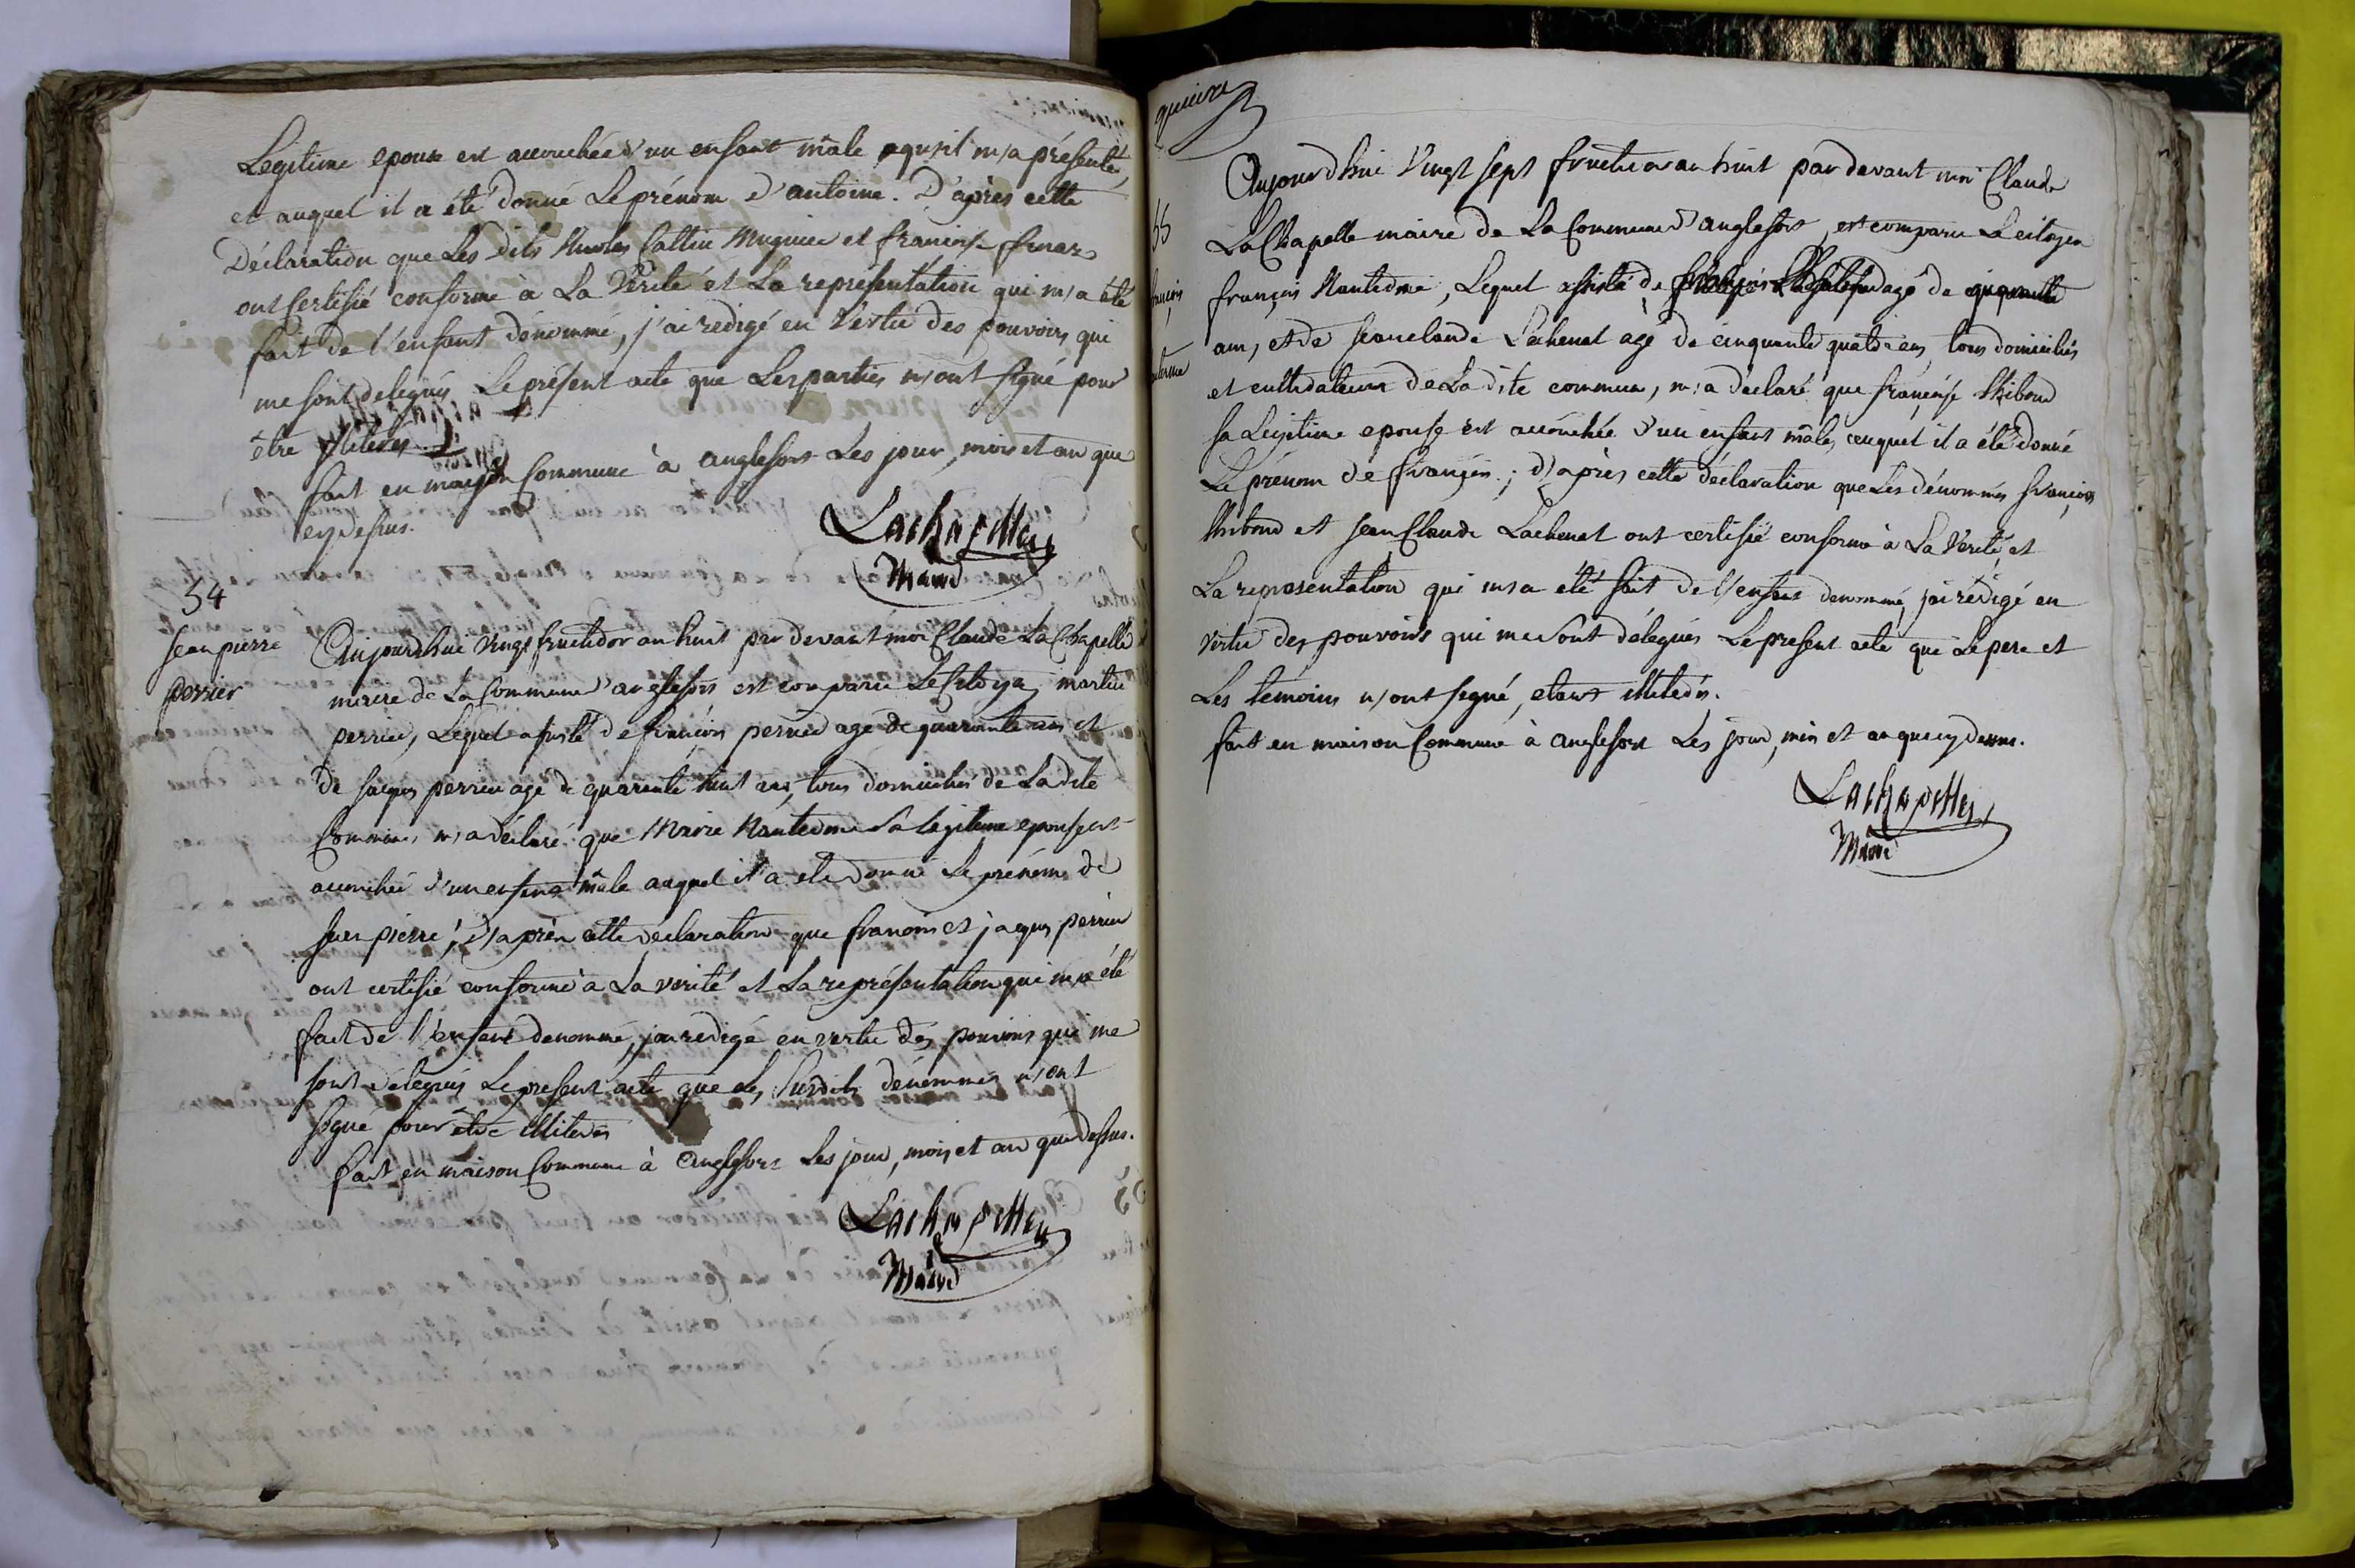 Legitime epouse est accouchée d'un enfant mâle qu'il m'a présenté,
et auquel il a été donné Le prénom d'antoine. D'après cette
Déclaration que Les dits Nicolas Cattin Mugnier et francois
ont Certifié conforme à La Vérité et La représentation qui m'a été
fait de l'enfant dénommé, j'ai redigé en Vertu des pouvoirs qui
me sont delegués Le présent acte que Les parties n'ont signé pour
être illiterés
fait en maison Commune à anglefort Les jour, mois et an que
cy dessus.
Lachapelle
Maire
54
Jean pierre
perrier
Aujourdhui vingt fructidor an huit par devant moi Claude La Chapelle
maire de La Commune d'anglefort est comparu Le Citoyen martin
perrier, Lequel assisté de françois perrier agé de quarante ans et
de jaques perrier agé de quarante huit ans, tous domiciliés de La dite
Commune, m'a déclaré que Marie Nanterme Sa Légitime epouse est
accouchée d'un enfant mâle auquel il a été donné Le prénom de
Jean pierre, d'après cette déclaration que francois et jaques perrier
ont certifié conforme à La vérité et La représentation qui m'a été
fait de l'enfant denommé, j'ai redigé en vertu des pouvoirs qui me
sont délegués Le present acte que Les Susdits dénommés n'ont
signé pour être illiterés
fait en maison Commune à anglefort Les jour, mois et an que dessus.
Lachapelle
Maire
55
françois
nanterme
Aujourdhui Vingt sept fructidor an huit par devant moi Claude
La Chapelle maire de La Commune d'anglefort, est comparu Le citoyen
françois Nanterme, Lequel assisté de agé de
ans, et de jean claude Lachenal agé de cinquante quatre ans, tous domiciliés
et cultivateurs de La dite commune, m'a déclaré que françoise Thiboud
sa Légitime epouse est accouchée d'un enfant mâle, auquel il a été donné
Le prénom de françois; d'après cette déclaration que Les dénommés françois
Thiboud et Jean Claude Lachenal ont certifié conforme à La Verité, et
La representation qui m'a été fait de l'enfant denommé, j'ai rédigé en
vertu des pouvoirs qui me sont délegués Le present acte que Le pere et
Les témoins n'ont signé, etant illiterés.
fait en maison Commune à anglefort Les jour, mois et an que cy dessus.
Lachapelle
Maire